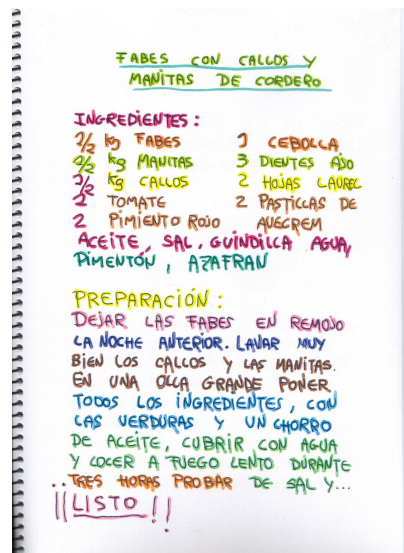 FABES CON CALLOS Y
MANITAS DE CORDERO
INGREDIENTES:
1/2 kg FABES 1 CEBOLLA
1/2 kg MANITAS 3 DIENTES AJO
1/2 kg CALLOS 2 HOJAS LAUREL
2 TOMATE 2 PASTILLAS DE
2 PIMIENTO ROJO AVECREM
ACEITE, SAL, GUINDILLA AGUA,
PIMENTÓN, AZAFRAN
PREPARACIÓN:
DEJAR LAS FABES EN REMOJO
LA NOCHE ANTERIOR. LAVAR MUY
BIEN LOS CALLOS Y LAS MANITAS.
EN UNA OLLA GRANDE PONER
TODOS LOS INGREDIENTES, CON
LAS VERDURAS Y UN CHORRO
DE ACEITE, CUBRIR CON AGUA
Y COCER A FUEGO LENTO DURANTE
..TRES HORAS PROBAR DE SAL Y...
¡¡LISTO!!